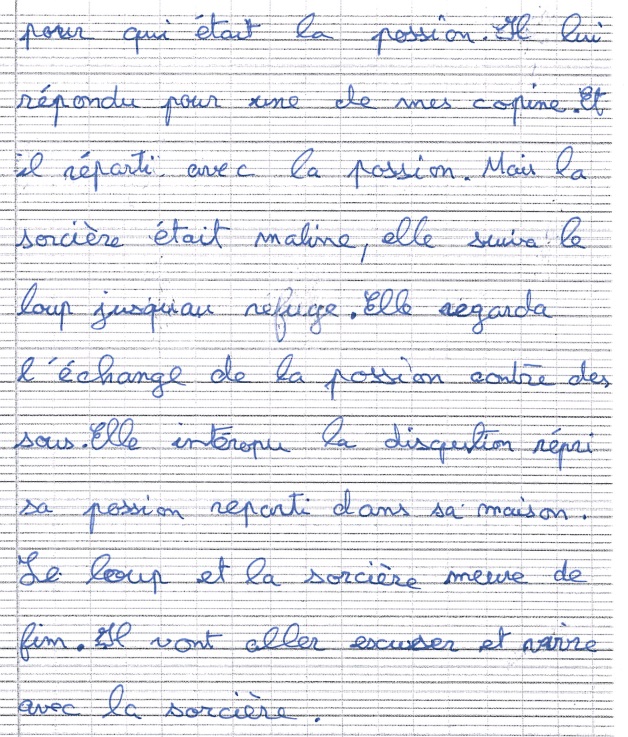 pour qui était la possion. Il lui
répondu pour une de mes copine. Et
il réparti avec la possion. Mais la
sorcière était maline, elle suiva le
loup jusqu'au refuge. Elle regarda
l'échange de la possion contre des
sous. Elle interopu la disqustion répri
sa possion reparti dans sa maison.
Le loup et la sorcière meure de
fim. Il vont aller escuser et vivre
avec la sorcière.